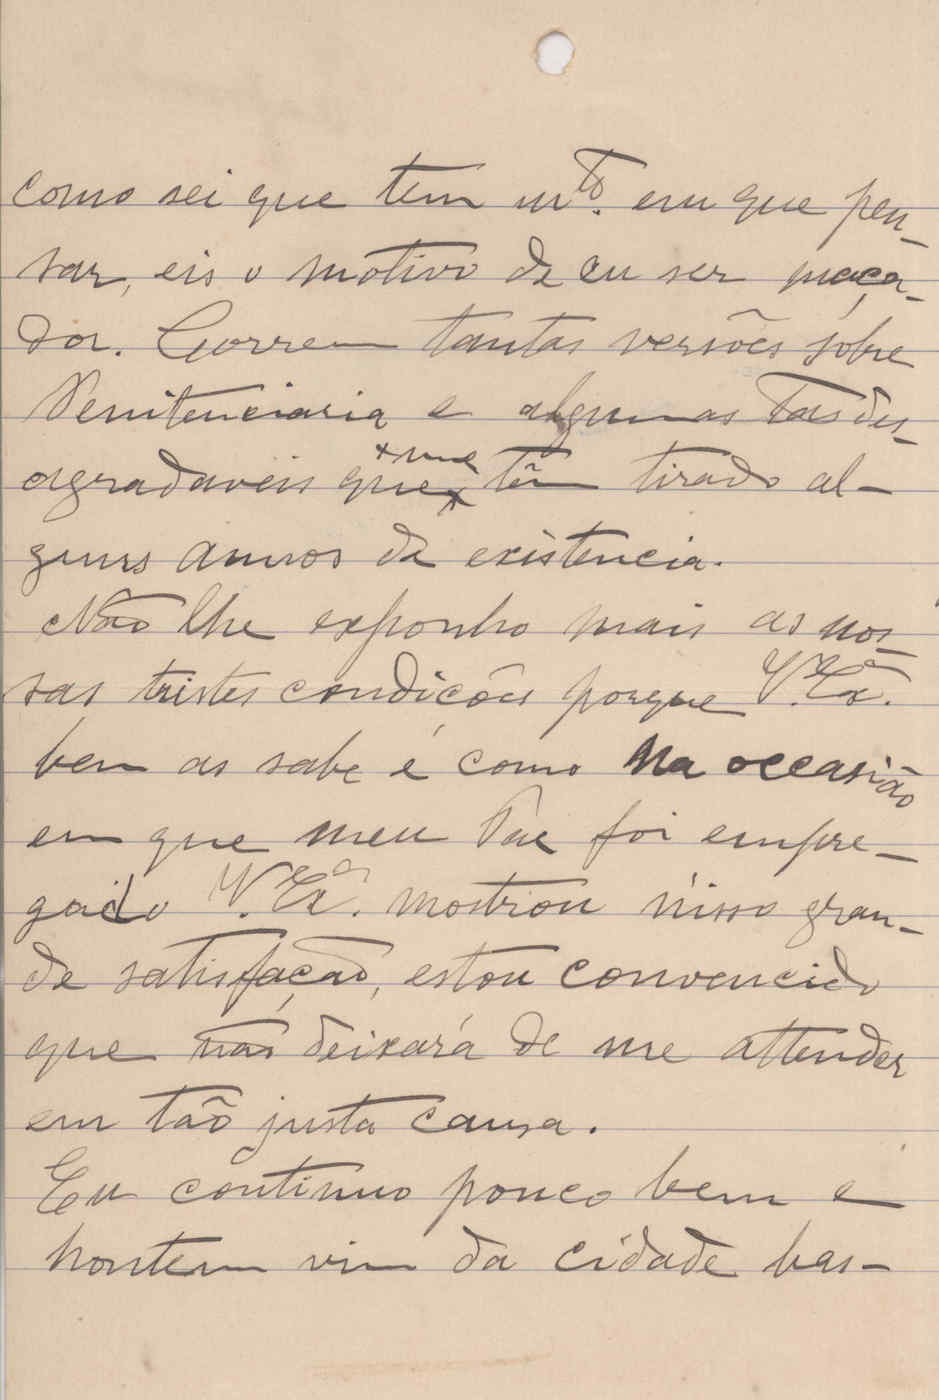 como sei que tem mto. em que pen-
sar, eis o motivo de eu ser maça-
dor. Correm tantas versões sobre
Penitenciaria e algumas tas des-
agradaveis que me têm tirado al-
guns annos de existencia.
Não lhe exponho mais as nos-
sas tristes condicões porque V. Exa.
bem as sabe é como na occasião
em que meu Pae foi empre-
gado V. Exa. mostrou n'isso gran-
de satisfação, estou convencido
que não deixará de me attender
em tão justa causa.
Eu continuo pouco bem e
hontem vim da cidade bas-